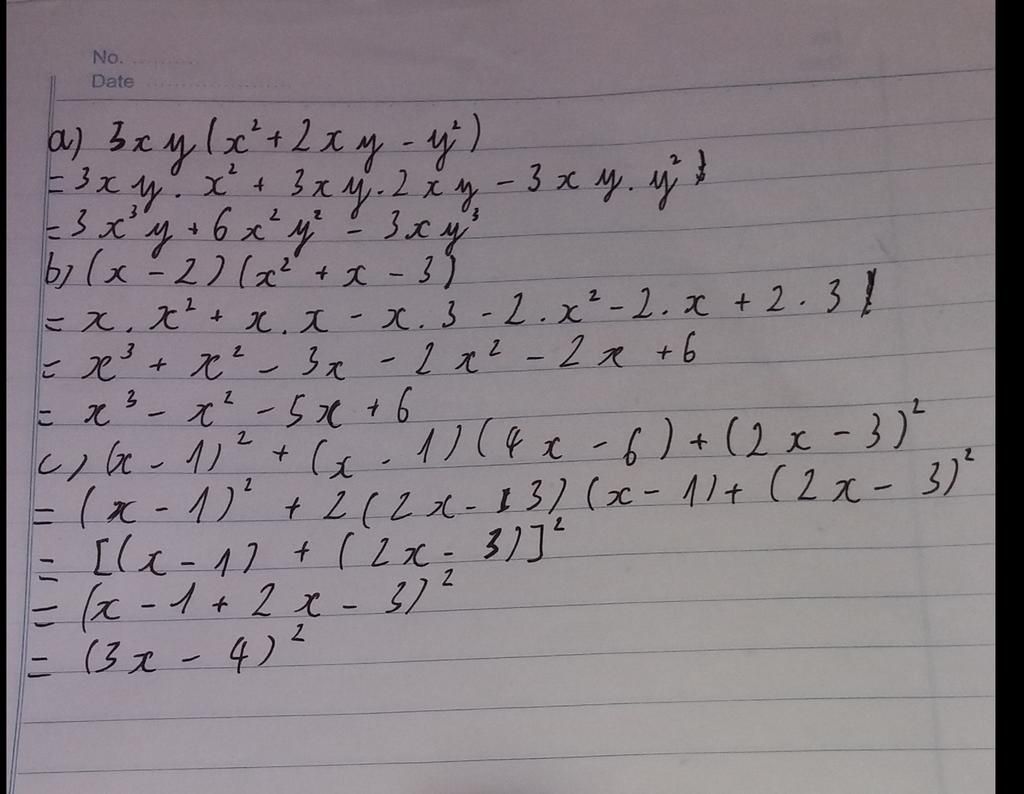 No. ............
Date ........................
a) 3xy(x² + 2xy - y²)
= 3xy. x² + 3xy.2xy - 3xy. y²
= 3x³y + 6x²y² - 3xy³
b) (x - 2)(x² + x - 3)
= x. x² + x. x - x.3 - 2.x² - 2.x + 2.3
= x³ + x² - 3x - 2x² - 2x + 6
= x³ - x² - 5x + 6
c) (x - 1)² + (x - 1)(4x - 6) + (2x - 3)²
= (x - 1)² + 2(2x - 3)(x - 1) + (2x - 3)²
= [(x - 1) + (2x - 3)]²
= (x - 1 + 2x - 3)²
= (3x - 4)²